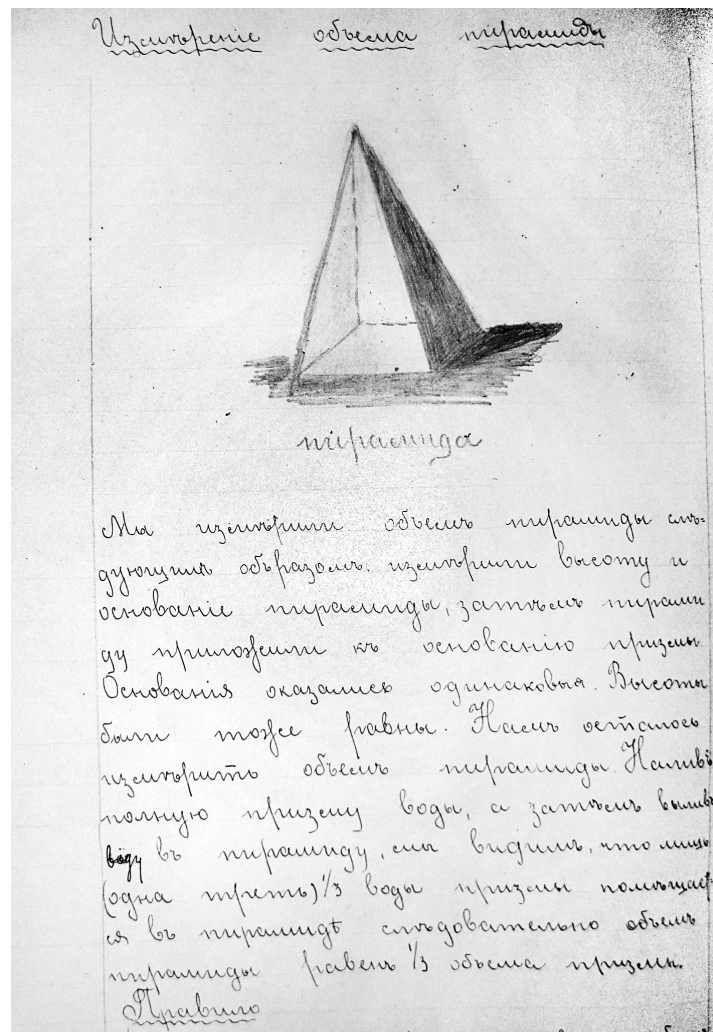 Измѣреніе объема пирамиды
пирамида
Мы измѣрили объемъ пирамиды слѣ-
дующимъ образомъ: измѣрили высоту и
основаніе пирамиды, затѣмъ пирами
ду приложили къ основанію призмы.
Основанія оказались одинаковыя. Высоты
были тоже равны. Намъ осталось
измѣрить объемъ пирамиды. Наливъ
полную призму воды, а затѣмъ выливъ
воду въ пирамиду, мы видимъ, что лишь
(одна треть) 1/3 воды призмы помѣщает-
ся въ пирамидѣ слѣдовательно объемъ
пирамиды равенъ 1/3 объема призмы.
Правило